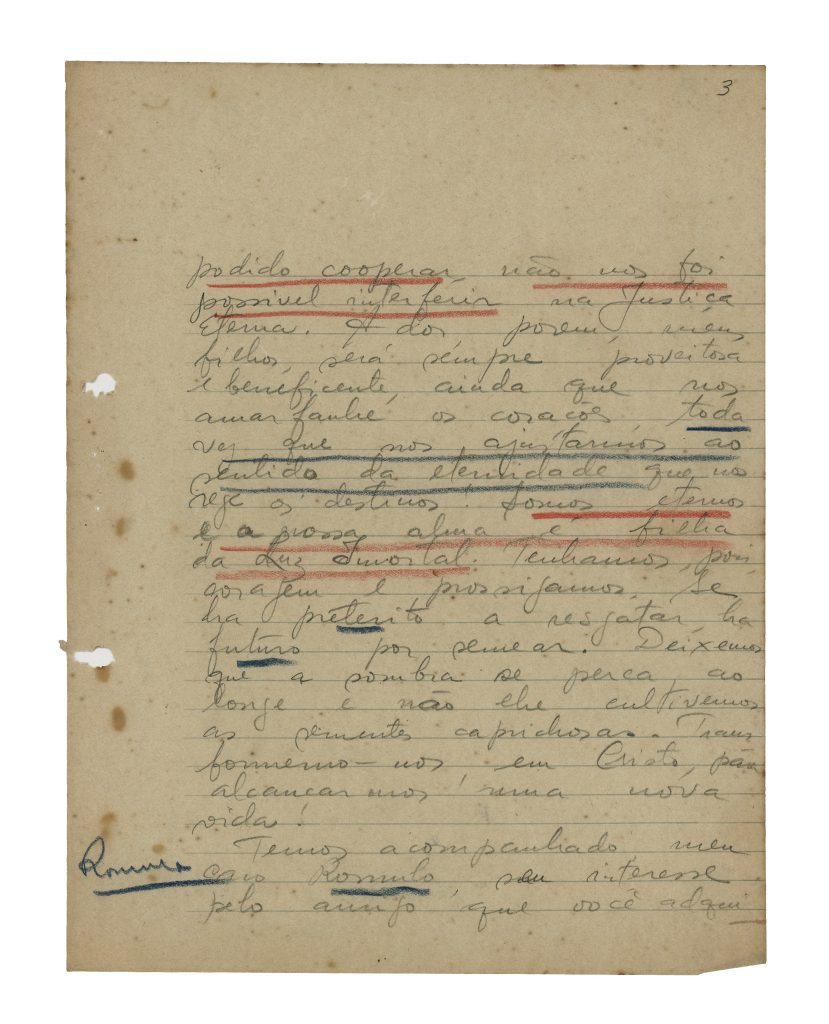 3
podido cooperar, não nos foi
possivel interferir na Justiça
Eterna. A dor, porem, meus
filhos, será sempre proveitosa
e beneficente, ainda que nos
amarfanhe os corações, toda
vez que nos ajustarmos ao
sentido da eternidade que nos
rege os destinos! Somos eternos
e a nossa alma é filha
da Luz Imortal. Tenhamos, pois,
coragem e prossigamos. Se
ha preterito a resgatar, ha
futuro por semear. Deixemos
que a sombra se perca, ao
longe e não lhe cultivemos
as sementes caprichosas. Trans
formemo-nos em Cristo, para
alcançarmos uma nova
vida!
Temos acompanhado meu
Romulo
caro Romulo, seu interesse
pelo que você adqui